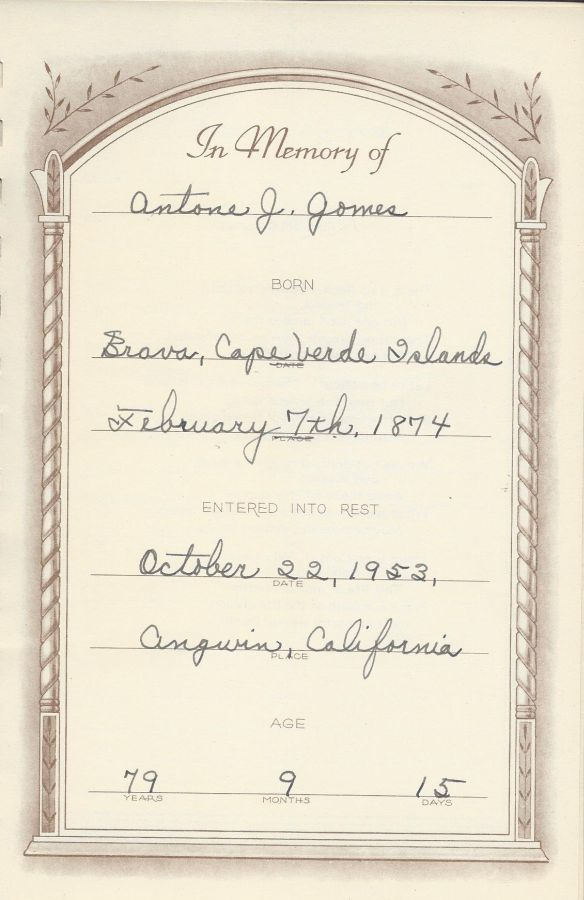 In Memory of
Antone J. Gomes
BORN
Brava, Cape Verde Islands
DATE
February 7th, 1874
PLACE
ENTERED INTO REST
October 22, 1953,
DATE
Angwin, California
PLACE
AGE
79 9 15
YEARS MONTHS DAYS